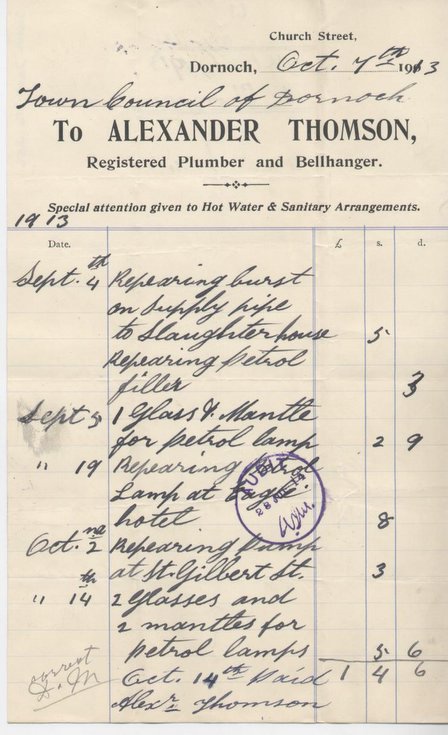 Church Street,
Dornoch, Oct. 7th 1913
Town Council of Dornoch
To ALEXANDER THOMSON,
Registered Plumber and Bellhanger.
Special attention given to Hot Water & Sanitary Arrangements.
1913
Date. £ s. d.
Sept. 4th Repearing burst
on supply pipe
to Slaughterhouse 5
Repearing Petrol
filler 3
Sept 5 1 Glass & Mantle
for petrol lamp 2 9
" 19 Repearing Petrol
Lamp at Eagle
hotel 8
Oct. 2nd Repearing Pump
at St. Gilbert St. 3
" 14th 2 Glasses and
2 mantles for
petrol lamps 5 6
Oct. 14th Paid 1 4 6
Alexr Thomson
correct
D. M
AUDIT